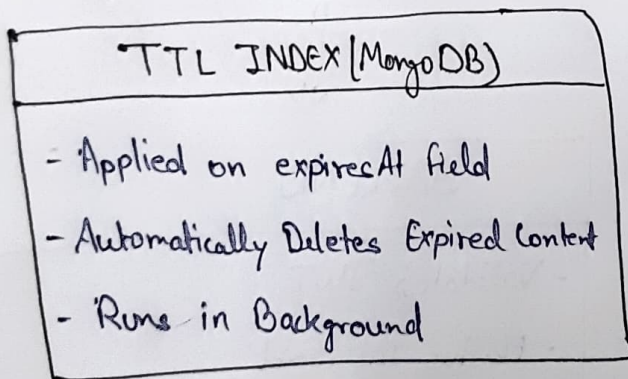 TTL INDEX (MongoDB)
- Applied on expiresAt field
- Automatically Deletes Expired Content
- Runs in Background